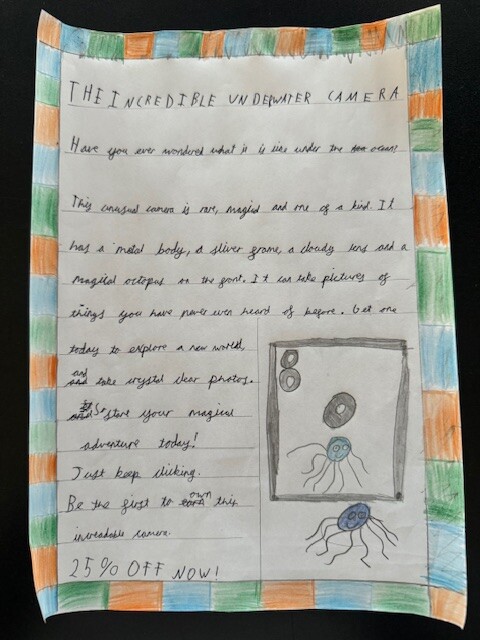 THE INCREDIBLE UNDERWATER CAMERA
Have you ever wondered what it is like under the ocean!
This unusual camera is rare, magical and one of a kind. It
has a metal body, a sliver frame, a cloudy lens and a
magical octopus on the front. It can take pictures of
things you have never even heard of before. Get one
today to explore a new world,
and take crystal clear photos.
So start your magical
adventure today!
Just keep clicking.
Be the first to own this
increadable camera.
25% OFF NOW!